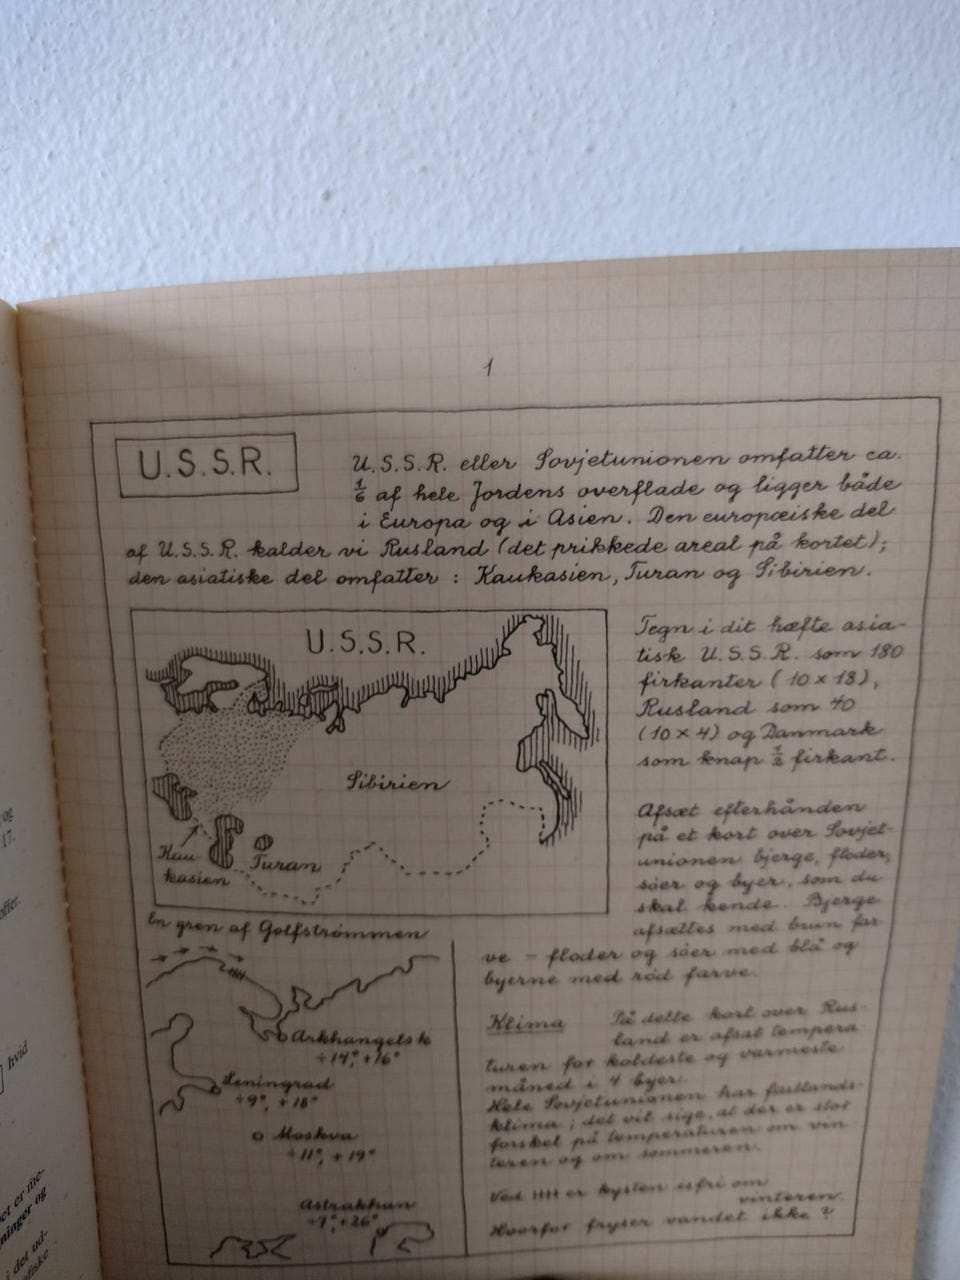 og
17.
offer.
hvid
et er me-
ninger og
i det ud-
1
U.S.S.R.
U.S.S.R. eller Sovjetunionen omfatter ca.
1/6 af hele Jordens overflade og ligger både
i Europa og i Asien. Den europæiske del
af U.S.S.R. kalder vi Rusland (det prikkede areal på kortet);
den asiatiske del omfatter : Kaukasien, Turan og Sibirien.
U.S.S.R.
Sibirien
Kau-
kasien
Turan
Tegn i dit hæfte asia-
tisk U.S.S.R. som 180
firkanter (10 x 18),
Rusland som 40
(10 x 4) og Danmark
som knap 1/2 firkant.
Afsæt efterhånden
på et kort over Sovjet-
unionen bjerge, floder,
söer og byer, som du
skal kende. Bjerge
afsættes med brun far-
ve - floder og söer med blå og
byerne med röd farve.
En gren af Golfströmmen
Arkhangelsk
÷14°, +16°
Leningrad
÷9°, +18°
Moskva
÷11°, +19°
Astrakhan
÷7°, +26°
Klima På dette kort over Rus-
land er afsat tempera
turen for koldeste og varmeste
måned i 4 byer.
Hele Sovjetunionen har fastlands-
klima; det vil sige, at der er stor
forskel på temperaturen om vin-
teren og om sommeren.
Ved er kysten isfri om
vinteren.
Hvorfor fryser vandet ikke ?